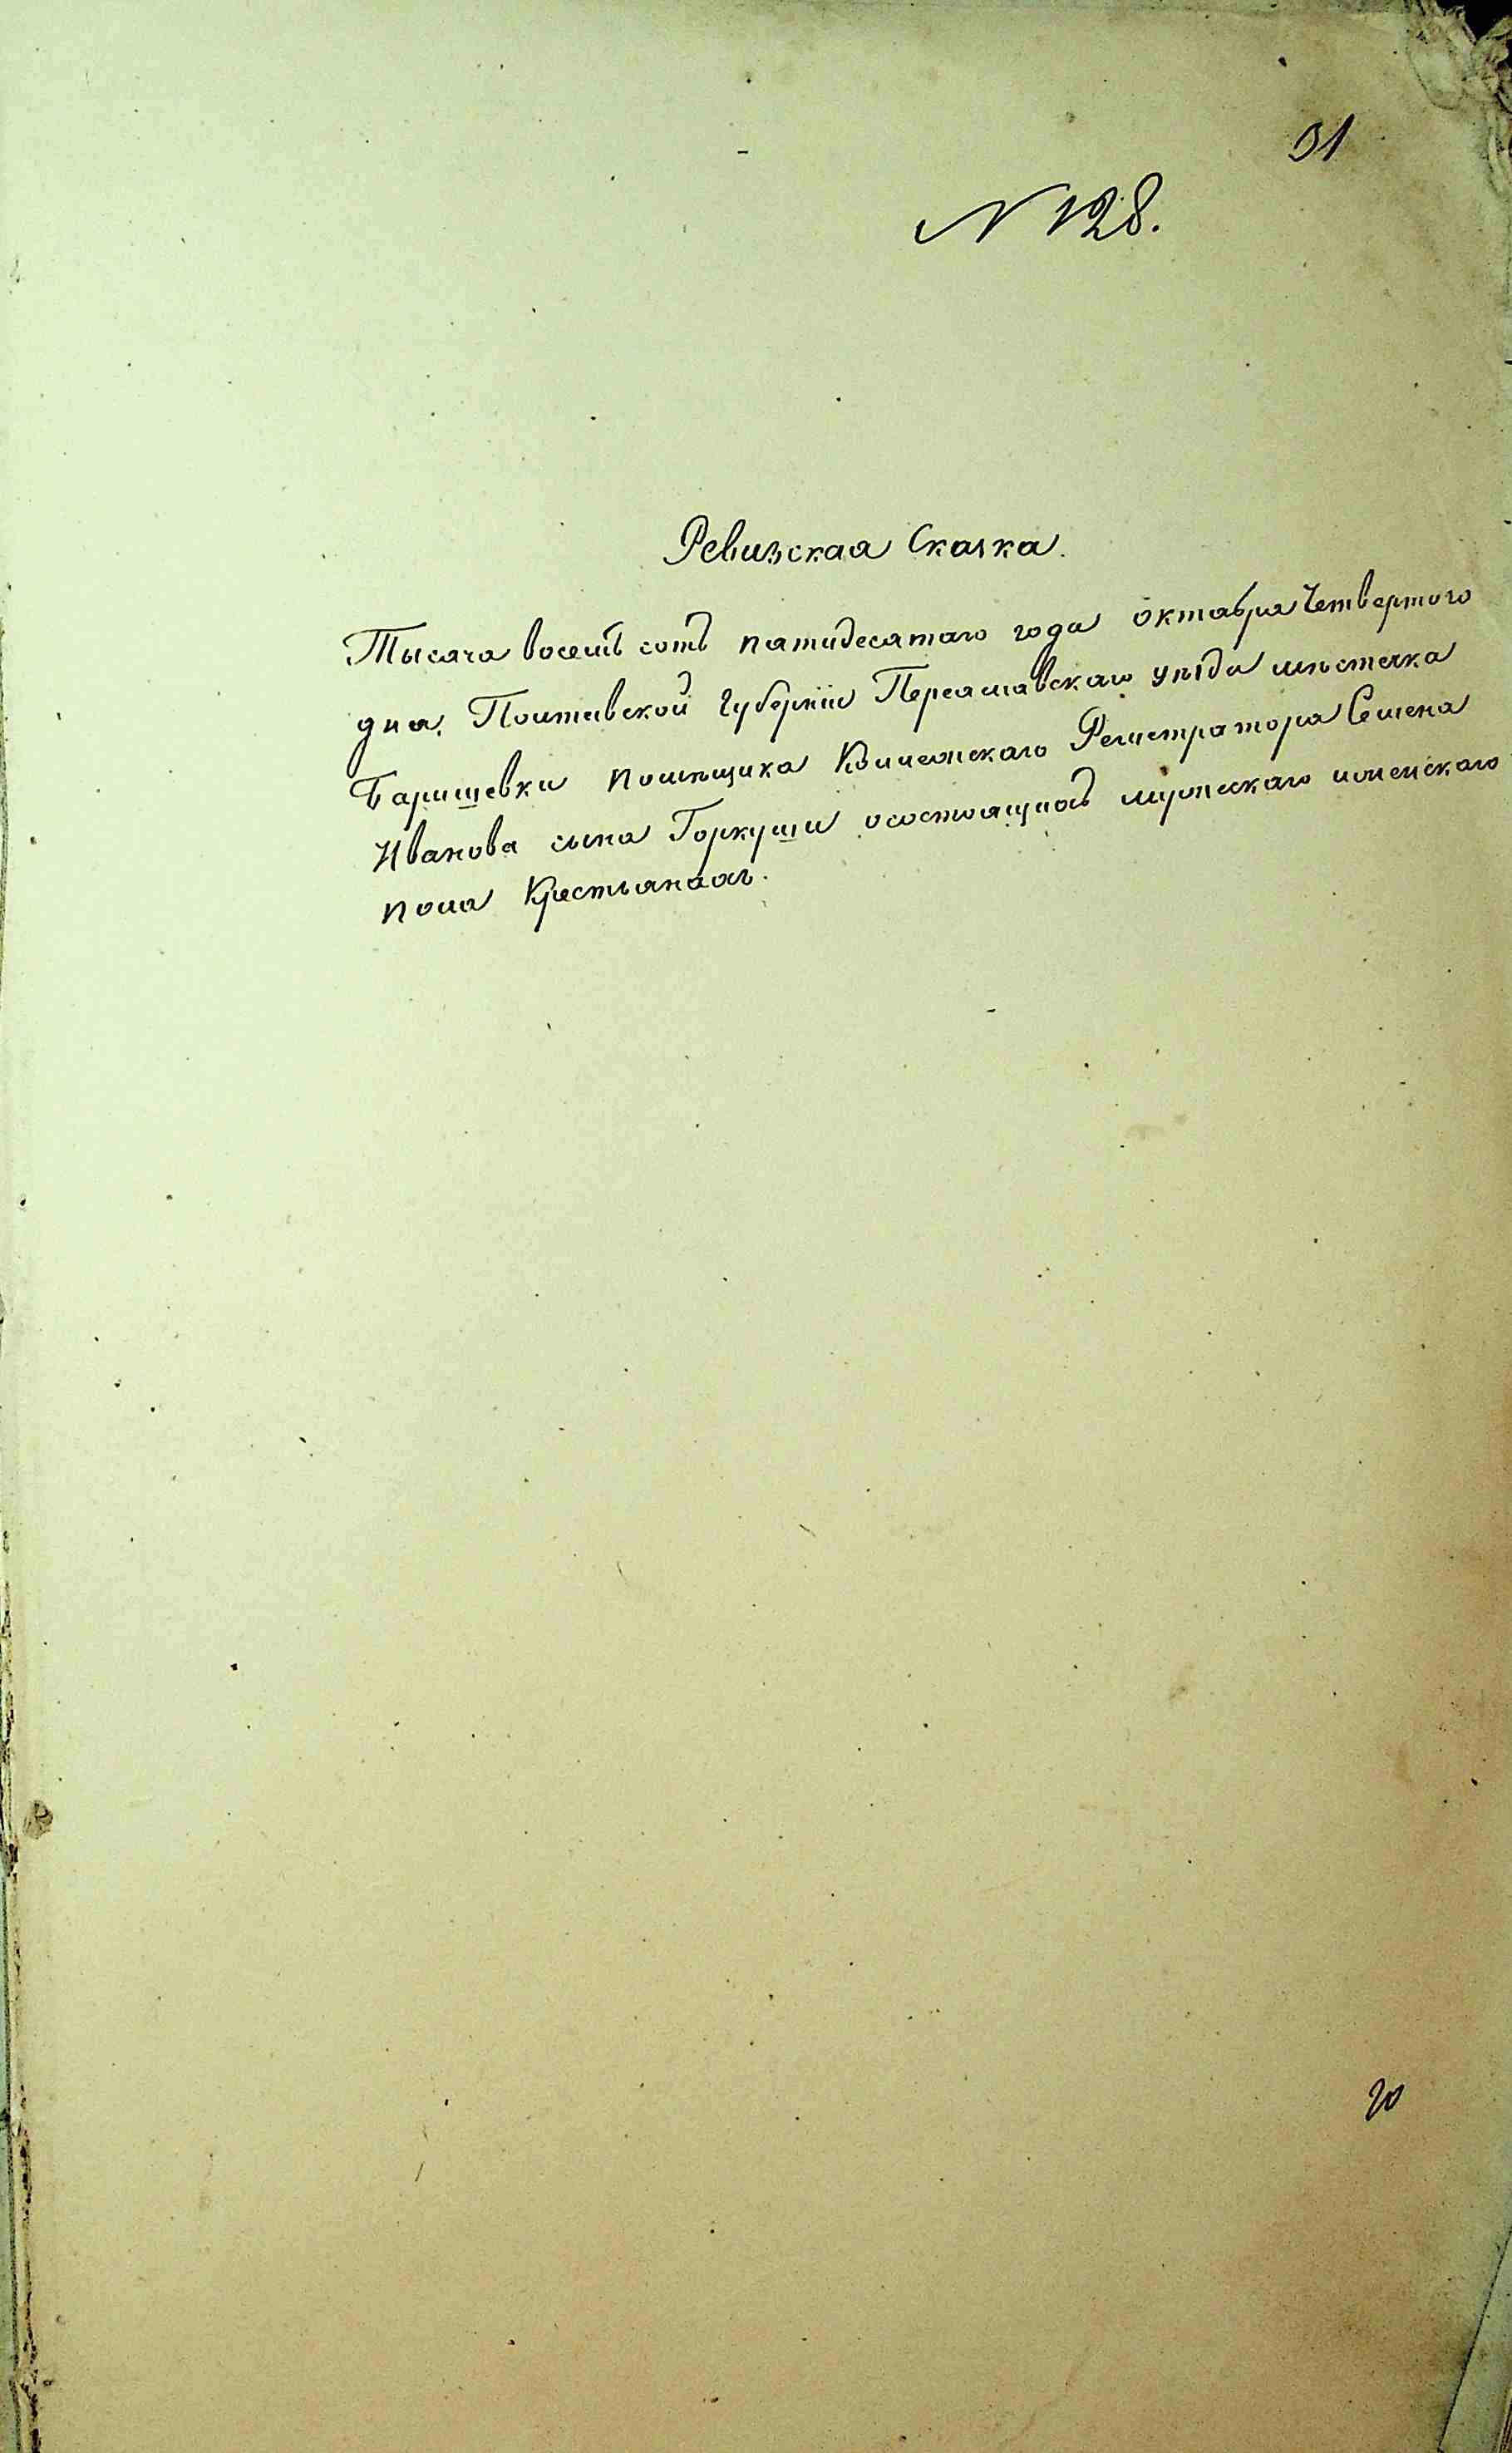 31
N 128.
Ревизская Сказка.
Тысяча восемь сотъ пятидесятаго года октября Четвертого
дня, Полтавской Губерніи Переяславскаго уѣзда мѣстечка
Баришевки помѣщика Колежскаго Регистратора Семена
Иванова сына Горкуши о состоящихъ мужескаго и женскаго
пола Крестьянахъ.
20